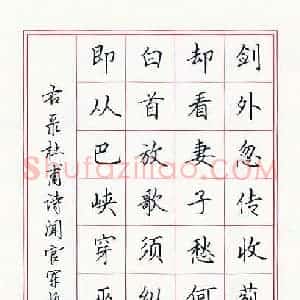 剑外忽传收蓟
却看妻子愁何
白首放歌须纵
即从巴峡穿巫
右录杜甫诗闻官军
Shufaziliao.com